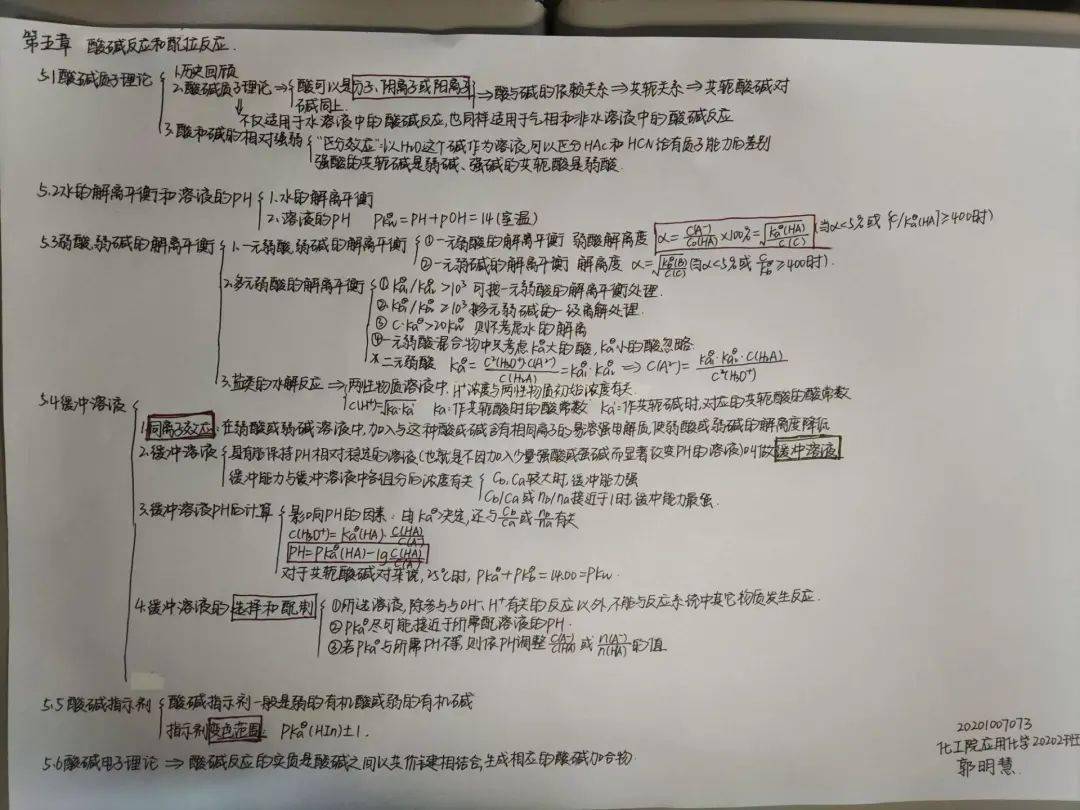 第五章 酸碱反应和配位反应.
5.1酸碱质子理论
1.历史回顾
2.酸碱质子理论⇒酸可以是分子、阴离子或阳离子⇒酸与碱的依赖关系⇒共轭关系⇒共轭酸碱对
碱同上.
不仅适用于水溶液中的酸碱反应,也同样适用于气相和非水溶液中的酸碱反应
3.酸和碱的相对强弱 "区分效应":以H₂O这个碱作为溶液,可以区分HAc和HCN给有质子能力的差别
强酸的共轭碱是弱碱、强碱的共轭酸是弱酸.
5.2水的解离平衡和溶液的PH 1.水的解离平衡
2.溶液的PH PKw^θ=PH+POH=14(室温)
5.3弱酸、弱碱的解离平衡 1.一元弱酸、弱碱的解离平衡 ①一元弱酸的解离平衡 弱酸解离度 α=C(A⁻)/C₀(HA)×100%=√(Ka^θ(HA)/C(C)) (当α<5%或 [C/Ka^θ(HA)]≥400时)
②一元弱碱的解离平衡 解离度 α=√(Kb^θ(B)/C(C)) (当α<5%或 C/Kb^θ≥400时).
2.多元弱酸的解离平衡 ①Ka₁^θ/Ka₂^θ>10³ 可按一元弱酸的解离平衡处理.
②Ka₁^θ/Ka₂^θ≥10³ 按多元弱碱的一级离解处理.
③C·Ka^θ>20Kw^θ 则不考虑水的解离
④一元弱酸混合物中只考虑Ka^θ大的酸,Ka^θ小的酸忽略.
※二元弱酸 Ka^θ=C²(H₃O⁺)·C(A²⁻)/C(H₂A)=Ka₁^θ·Ka₂^θ⇒C(A²⁻)=Ka₁^θ·Ka₂^θ·C(H₂A)/C²(H₃O⁺)
3.盐类的水解反应⇒两性物质溶液中,H⁺浓度与两性物质初始浓度有关.
C(H⁺)=√(Ka·Ka') Ka:作共轭酸时的酸常数 Ka'=作共轭碱时,对应的共轭酸的酸常数
5.4缓冲溶液
1.同离子效应:在弱酸或弱碱溶液中,加入与这种酸或碱含有相同离子的易溶强电解质,使弱酸或弱碱的解离度降低
2.缓冲溶液 具有能保持PH相对稳定的溶液(也就是不因加入少量强酸或强碱而显著改变PH的溶液)叫做缓冲溶液
缓冲能力与缓冲溶液中各组分的浓度有关 Cb、Ca较大时,缓冲能力强
Cb/Ca或nb/na接近于1时,缓冲能力最强.
3.缓冲溶液PH的计算 影响PH的因素:由Ka^θ决定,还与Cb/Ca或nb/na有关
C(H₃O⁺)=Ka^θ(HA)·C(HA)/C(A⁻)
PH=PKa^θ(HA)-lgC(HA)/C(A⁻)
对于共轭酸碱对来说,25℃时,PKa^θ+PKb^θ=14.00=PKw.
4.缓冲溶液的选择和配制 ①所选溶液,除参与与OH⁻、H⁺有关的反应以外,不能与反应系统中其它物质发生反应.
②PKa^θ尽可能接近于所需配溶液的PH.
③若PKa^θ与所需PH不等,则依PH调整C(A⁻)/C(HA)或n(A⁻)/n(HA)的值
5.5酸碱指示剂 酸碱指示剂一般是弱的有机酸或弱的有机碱
指示剂变色范围: PKa^θ(HIn)±1.
5.6酸碱电子理论⇒酸碱反应的实质是酸碱之间以共价键相结合,生成相应的酸碱加合物.
20201007073
化工院应用化学20202班
郭明慧.